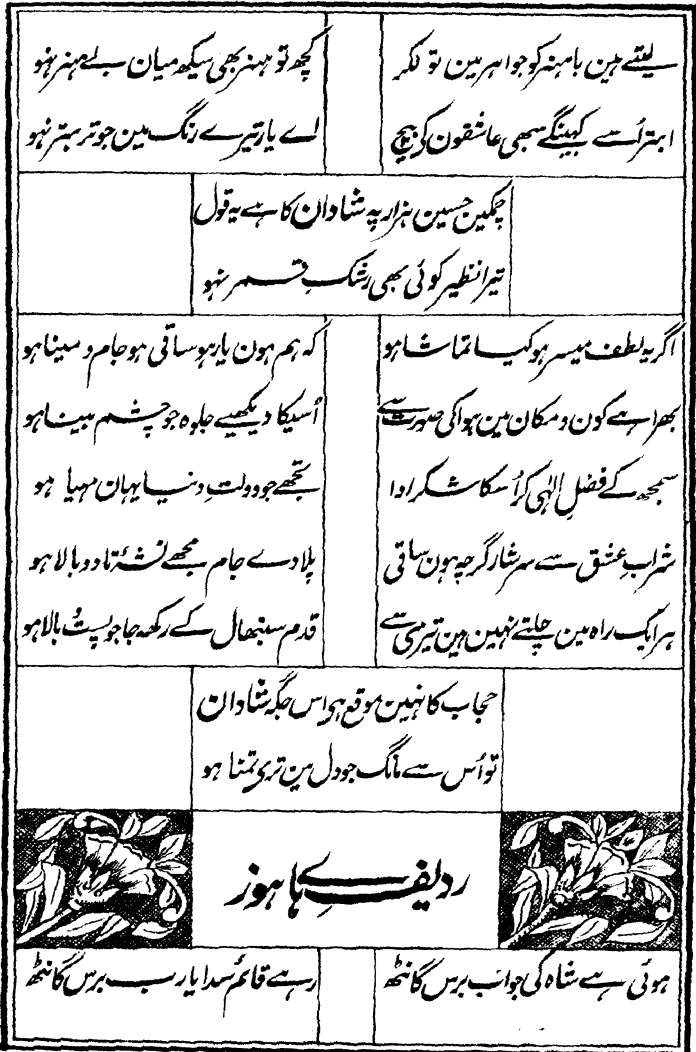 لیتے ہین باہنر کو جواہر مین تولکر
کچھ تو ہنر بھی سیکھ میان بے ہنر نہو
ابتر اُسے کہینگے سبھی عاشقون کی بیچ
اے یار تیرے رنگ مین جو تر بتر نہو
چمکین حسین ہزار پہ شادان کا ہے یہ قول
تیرا نظیر کوئی بھی رشکِ قمر نہو
اگر یہ لطف میسر ہو کیا تماشا ہو
کہ ہم ہون یار ہو ساقی ہو جام و مینا ہو
بھرا ہے کون و مکان مین ہوا کی صورت سے
اُسیکا دیکھیے جلوہ جو چشم بینا ہو
سمجھ کے فضلِ الٰہی کر اُسکا شکر ادا
تجھے جو دولتِ دنیا یہان مہیا ہو
شرابِ عشق سے سرشار گرچہ ہون ساقی
پلا دے جام مجھے نشۂ تا دوبالا ہو
ہر ایک راہ مین چلتے نہین ہین تیزی سے
قدم سنبھال کے رکھہ جا جو پست و بالا ہو
حجاب کا نہین موقع ہی اس جگہ شادان
تو اُس سے مانگ جو دل مین تری تمنا ہو
ردیفِ ہاے ہوز
ہوئی ہے شاہ کی جو اب برس گانٹھ
رہے قائم سدا یا رب برس گانٹھ